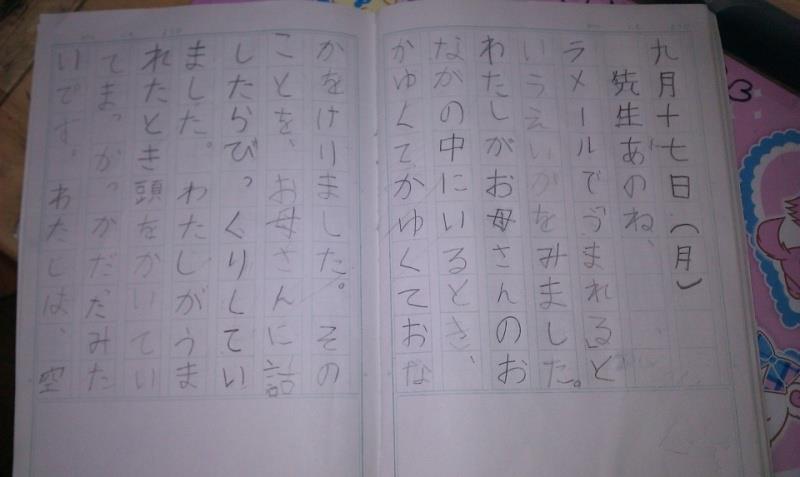 九月十七日(月)
先生あのね、
ラメールで「うまれる」と
いうえいがをみました。
わたしがお母さんのお
なかの中にいるとき、
かゆくてかゆくておな
かをけりました。その
ことを、お母さんに話
したらびっくりしてい
ました。わたしがうま
れたとき頭をかいてい
てまっかっかだたみた
いです。わたしは、空